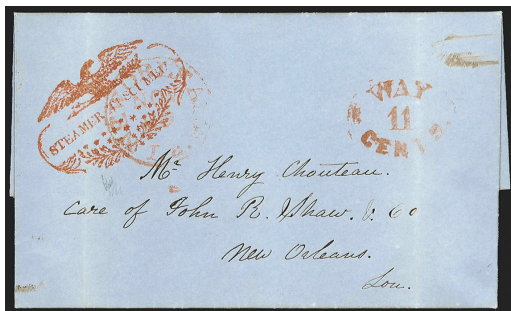 STEAMER
WAY
11
CENTS
Mr. Henry Chouteau.
Care of John R. Shaw. & Co
New Orleans.
Lou.